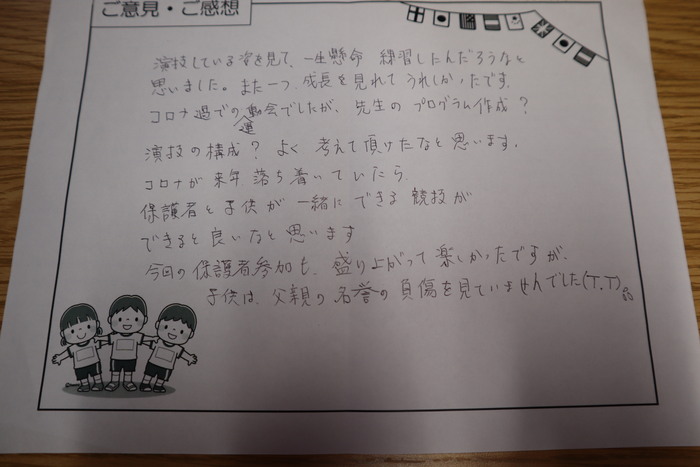 ご意見・ご感想
演技している姿を見て、一生懸命 練習したんだろうなと
思いました。また一つ、成長を見れて うれしかったです。
コロナ過での運動会でしたが、先生の プログラム作成?
演技の構成? よく 考えて頂けたなと 思います。
コロナが 来年 落ち着いていたら、
保護者と子供が 一緒に できる 競技が
できると良いなと思います
今回の保護者参加も、盛り上がって楽しかったですが、
子供は、父親の名誉の負傷を見ていませんでした(T.T)